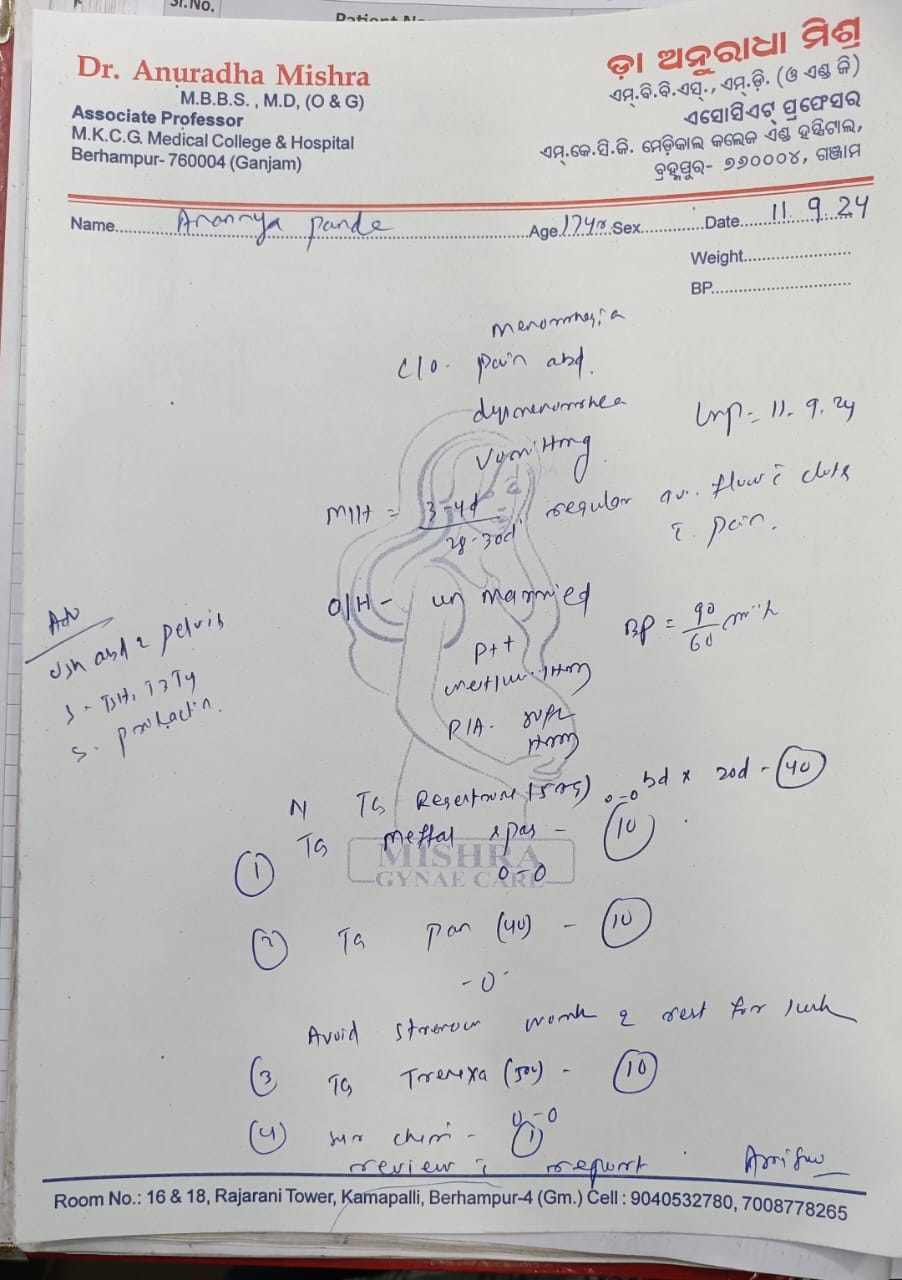 Sr.No.
Dr. Anuradha Mishra
M.B.B.S. , M.D, (O & G)
Associate Professor
M.K.C.G. Medical College & Hospital
Berhampur- 760004 (Ganjam)
ଡ଼ା ଅନୁରାଧା ମିଶ୍ର
ଏମ୍.ବି.ବି.ଏସ୍., ଏମ୍.ଡ଼ି. (ଓ ଏଣ୍ଡ ଜି)
ଏସୋସିଏଟ୍ ପ୍ରଫେସର
ଏମ୍.କେ.ସି.ଜି. ମେଡ଼ିକାଲ କଲେଜ ଏଣ୍ଡ ହସ୍ପିଟାଲ,
ବ୍ରହ୍ମପୁର- ୭୬୦୦୦୪, ଗଞ୍ଜାମ
Name Anannya Pande Age 17yr Sex Date 11.9.24
Weight
BP
Menorrhagia
C/O- Pain abd.
dysmenorrhea
Vomiting
LMP = 11.9.24
M/H = 3-4d / 28-30d regular av. flow c clots
c. pain.
O/H - un married
BP = 90/60
P++
P/A-
Adv
usn abd & pelvis
S- TSH, T3T4
S. prolactin
N Tb (5mg) bd x 20d - 40
1 Tb Meftal spas - 10
0-0
MISHRA
GYNAE CARE
2 Tb Pan (40) - 10
-0-
Avoid work & rest for
3 Tb (500) - 10
0-0
4 - 1
review c report
Room No.: 16 & 18, Rajarani Tower, Kamapalli, Berhampur-4 (Gm.) Cell : 9040532780, 7008778265